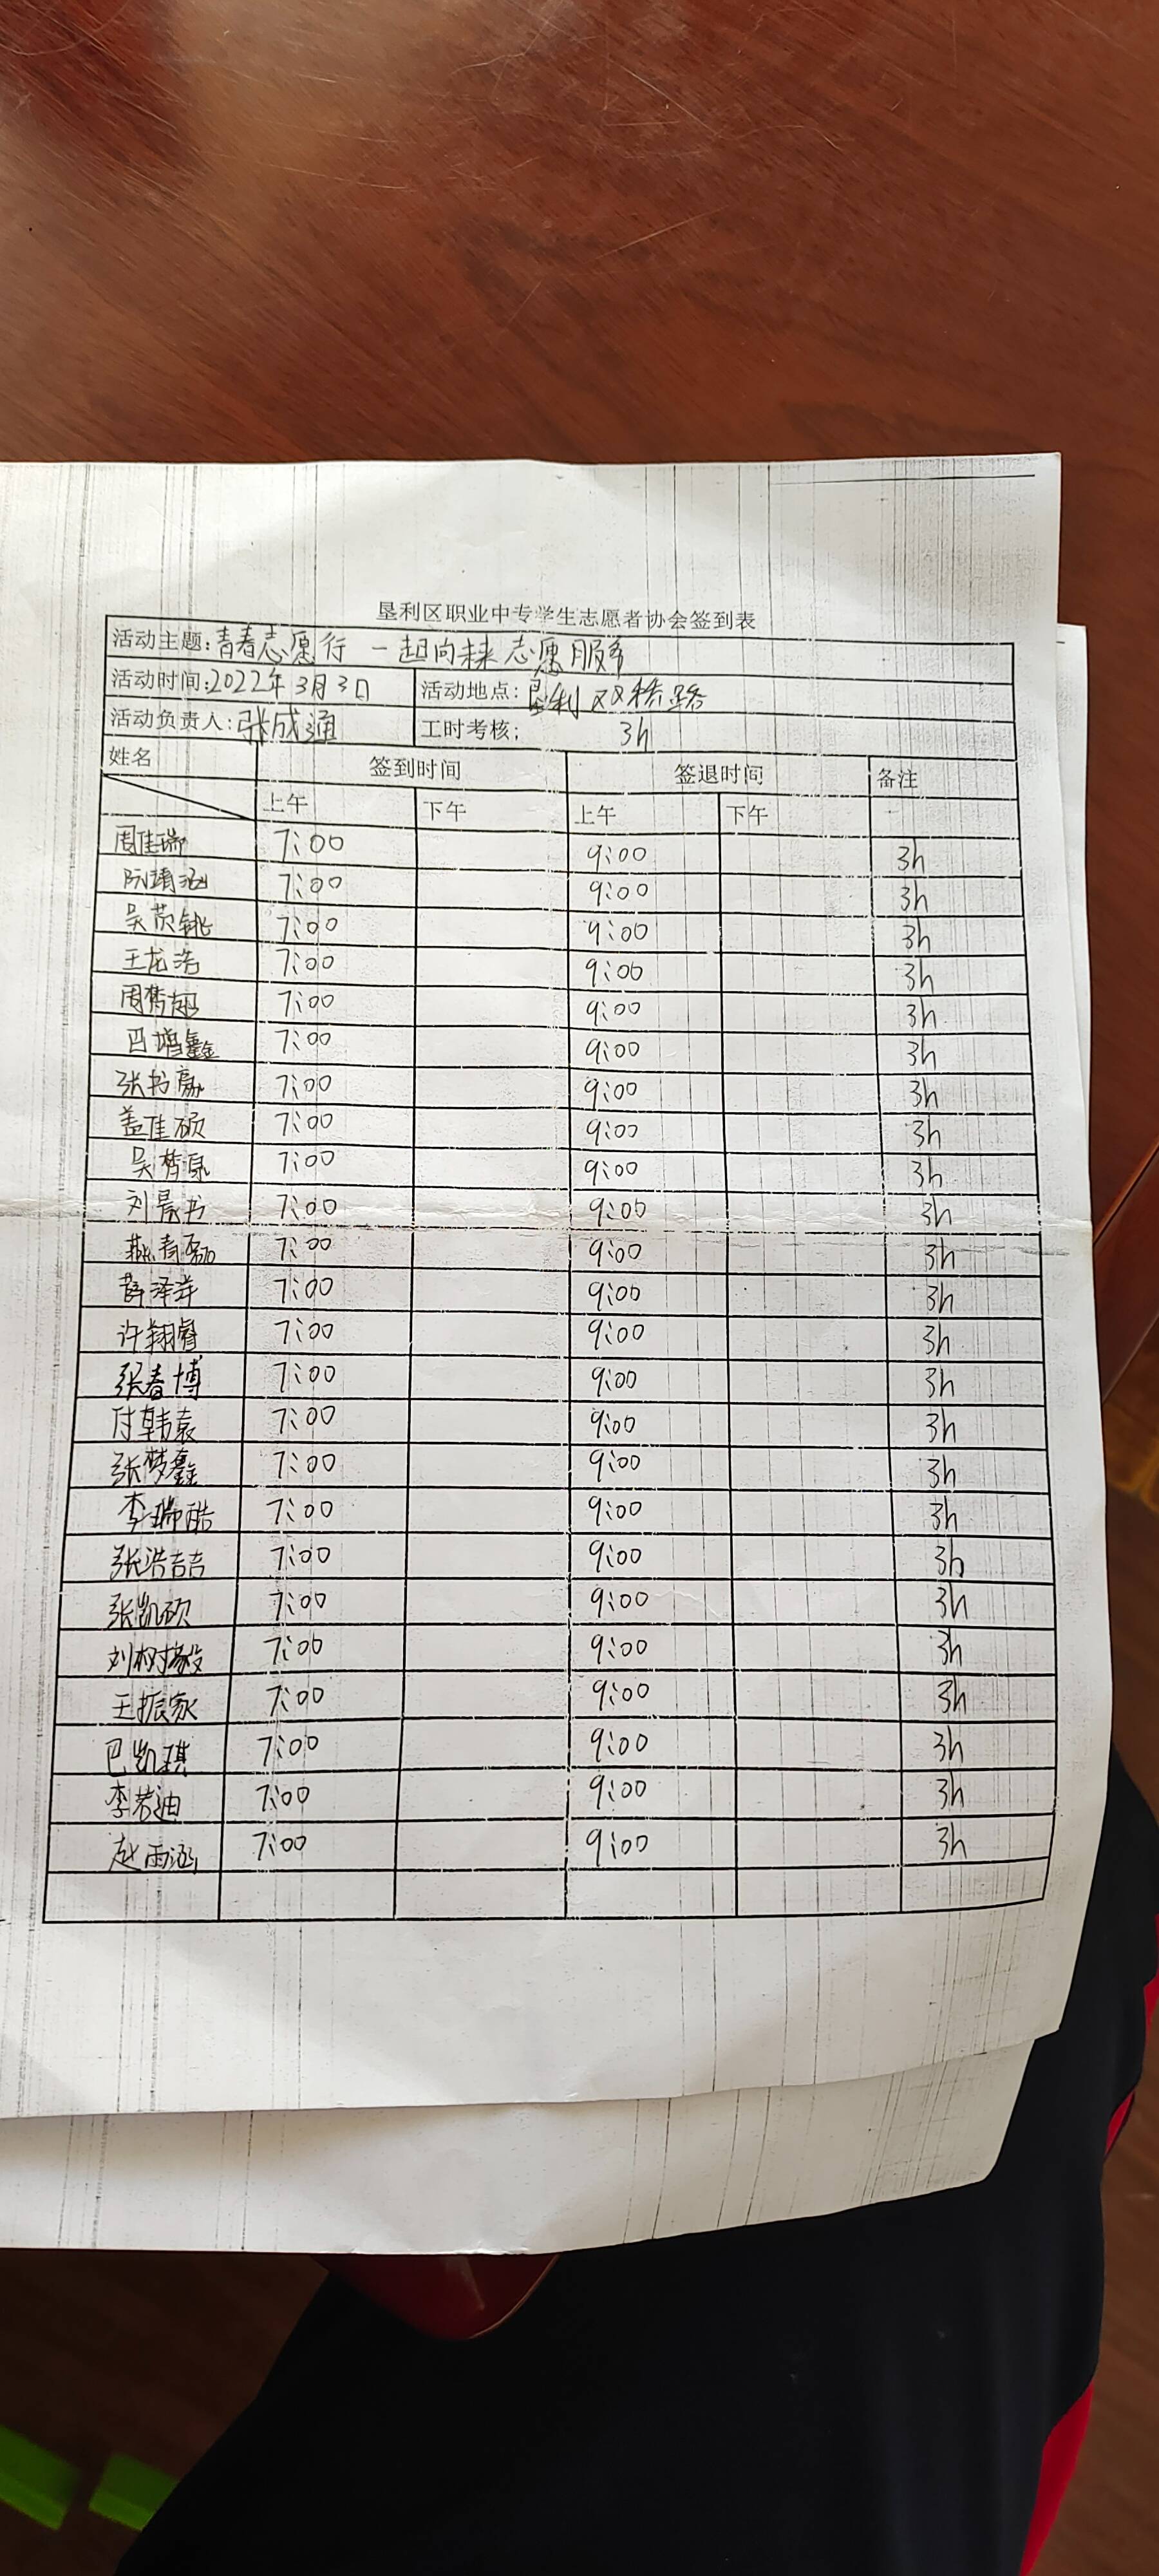 垦利区职业中专学生志愿者协会签到表
活动主题:青春志愿行 一起向未来 志愿服务
活动时间:2022年3月3日 活动地点:垦利双桥路
活动负责人:张成通 工时考核: 3h
姓名 签到时间 签退时间 备注
上午 下午 上午 下午
周佳瑞 7:00 9:00 3h
阮靖涵 7:00 9:00 3h
7:00 9:00 3h
王龙浩 7:00 9:00 3h
7:00 9:00 3h
7:00 9:00 3h
7:00 9:00 3h
盖佳硕 7:00 9:00 3h
吴梦源 7:00 9:00 3h
刘晨书 7:00 9:00 3h
7:00 9:00 3h
薛泽洋 7:00 9:00 3h
许翔睿 7:00 9:00 3h
张春博 7:00 9:00 3h
付韩袁 7:00 9:00 3h
张梦鑫 7:00 9:00 3h
李瑞皓 7:00 9:00 3h
张浩喆 7:00 9:00 3h
张凯硕 7:00 9:00 3h
7:00 9:00 3h
王振家 7:00 9:00 3h
巴凯琪 7:00 9:00 3h
李若迪 7:00 9:00 3h
赵雨涵 7:00 9:00 3h